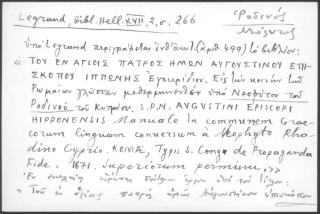 Legrand, Bibl. Hell. XVII, 2, σ. 266
Ῥοδινός
Νεόφυτος
ὑπὸ Legrand περιγράφεται (ἀριθ. 499) τὸ βιβλίον:
« ΤΟΥ ΕΝ ΑΓΙΟΙΣ ΠΑΤΡΟΣ ΗΜΩΝ ΑΥΓΟΥΣΤΙΝΟΥ ΕΠΙ-
ΣΚΟΠΟΥ ΙΠΠΩΝΗΣ Ἐγχειρίδιον. Εἰς τὴν κοινὴν τῶν
Ῥωμαίων γλῶσσαν μεθερμηνευθὲν ὑπὸ Νεοφύτου τοῦ
Ῥοδινοῦ τοῦ Κυπρίου. S.P.N. AUGUSTINI EPISCOPI
HIPPONENSIS Manuale In communem Grae-
corum linguam conversum à Neophyto Rho-
dino Cyprio. ROMÆ, Typis S. Congr. de Propaganda
Fide. 1671. Superiorum permissu. »
Ἐν συνεχείᾳ ὑπὸ τὸν τίτλον:
« Τοῦ ἐν ἁγίοις πατρὸς ἡμῶν Αὐγουστίνου ἐπισκόπου